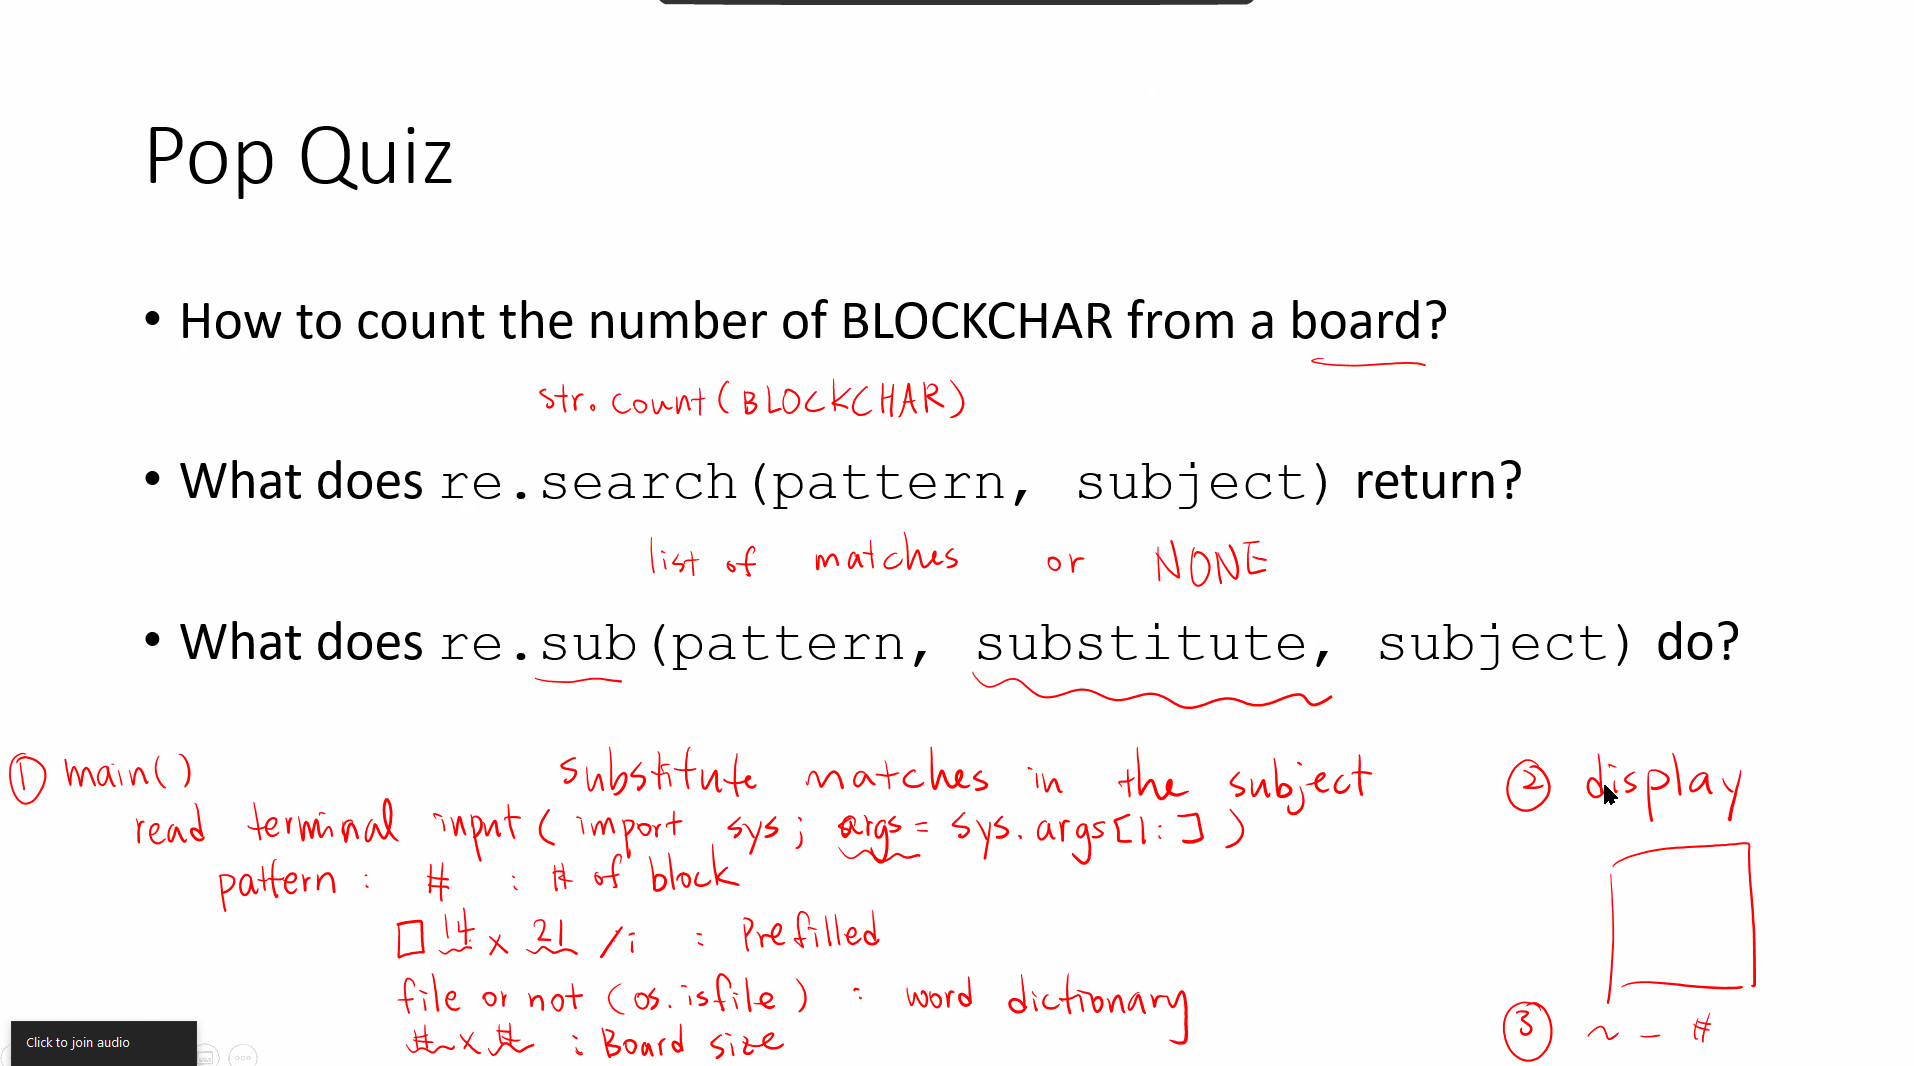 Pop Quiz
• How to count the number of BLOCKCHAR from a board?
str. count (BLOCKCHAR)
• What does re.search(pattern, subject) return?
list of matches or NONE
• What does re.sub(pattern, substitute, subject) do?
① main() substitute matches in the subject ② display
read terminal input ( import sys ; args = sys. args [1:] )
pattern : # : # of block
□ 14 x 21 /i : Prefilled
file or not (os.isfile) : word dictionary
# x # : Board size ③ ~ – #
Click to join audio